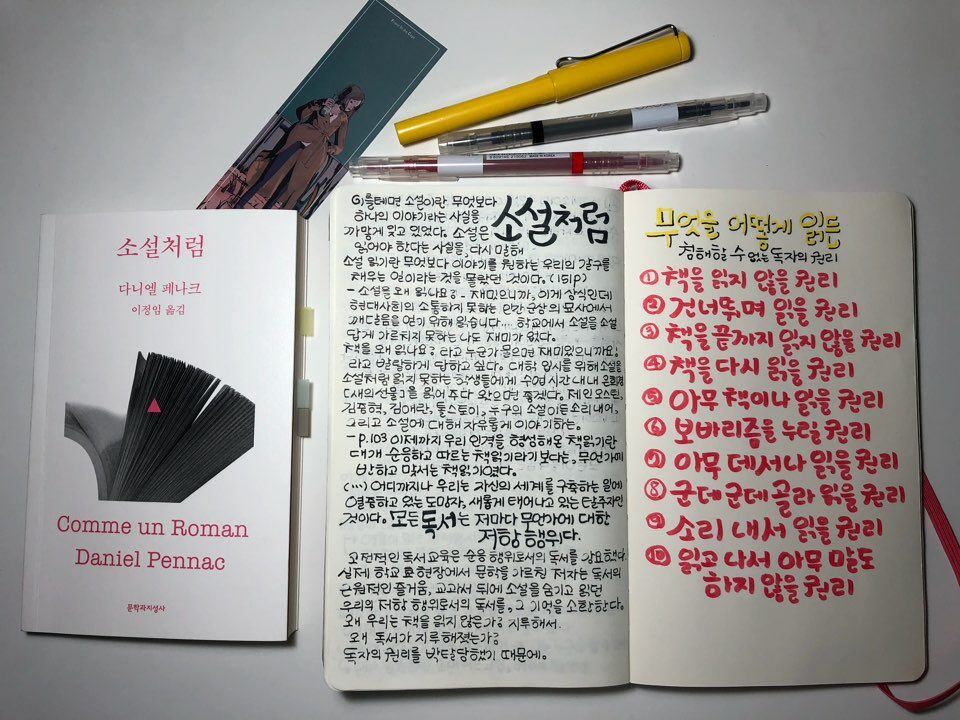 소설처럼
다니엘 페나크
이정임 옮김
Comme un Roman
Daniel Pennac
문학과지성사
MADE IN KOREA
소설처럼
이를테면 소설이란 무엇보다
하나의 이야기라는 사실을
까맣게 잊고 있었다. 소설은
읽어야 한다는 사실을, 다시 말해
소설 읽기란 무엇보다 이야기를 원하는 우리의 갈구를
채우는 일이라는 것을 몰랐던 것이다. (151P)
- 소설을 왜 읽나요? - 재미있으니까, 이게 상식인데
현대사회의 소통하지 못하는 인간 군상의 묘사에서
깨달음을 얻기 위해 읽습니다... 학교에서 소설을 소설
답게 가르치지 못하는 나도 재미가 없다.
책을 왜 읽나요? 라고 누군가 물으면 재미있으니까요.
라고 발랄하게 답하고 싶다. 대학 입시를 위해 소설을
소설처럼 읽지 못하는 학생들에게 수업 시간 내내 은희경
<새의 선물>을 읽어 주다 왔으면 좋겠다. 제인 오스틴,
김중혁, 김애란, 톨스토이, 누구의 소설이든 소리내어,
그리고 소설에 대해 자유롭게 이야기하는.
- p.103 이제까지 우리 인격을 형성해온 책읽기란
대개 순응하고 따르는 책읽기라기 보다는, 무언가에
반하고 맞서는 책읽기였다.
(...) 어디까지나 우리는 자신의 세계를 구축하는 일에
열중하고 있는 도망자, 새롭게 태어나고 있는 탈주자인
것이다. 모든 독서는 저마다 무언가에 대한
저항 행위다.
고전적인 독서교육은 순응 행위로서의 독서를 강요했다.
실제 학교 현장에서 문학을 가르친 저자는 독서의
근원적인 즐거움, 교과서 뒤에 소설을 숨기고 읽던
우리의 저항 행위로서의 독서를, 그 기억을 소환한다.
왜 우리는 책을 읽지 않은가? 지루해서.
왜 독서가 지루해졌는가?
독자의 권리를 박탈당했기 때문에.
무엇을 어떻게 읽든
침해할 수 없는 독자의 권리
① 책을 읽지 않을 권리
② 건너뛰며 읽을 권리
③ 책을 끝까지 읽지 않을 권리
④ 책을 다시 읽을 권리
⑤ 아무 책이나 읽을 권리
⑥ 보바리즘을 누릴 권리
⑦ 아무 데서나 읽을 권리
⑧ 군데군데 골라 읽을 권리
⑨ 소리 내서 읽을 권리
⑩ 읽고 나서 아무 말도
하지 않을 권리